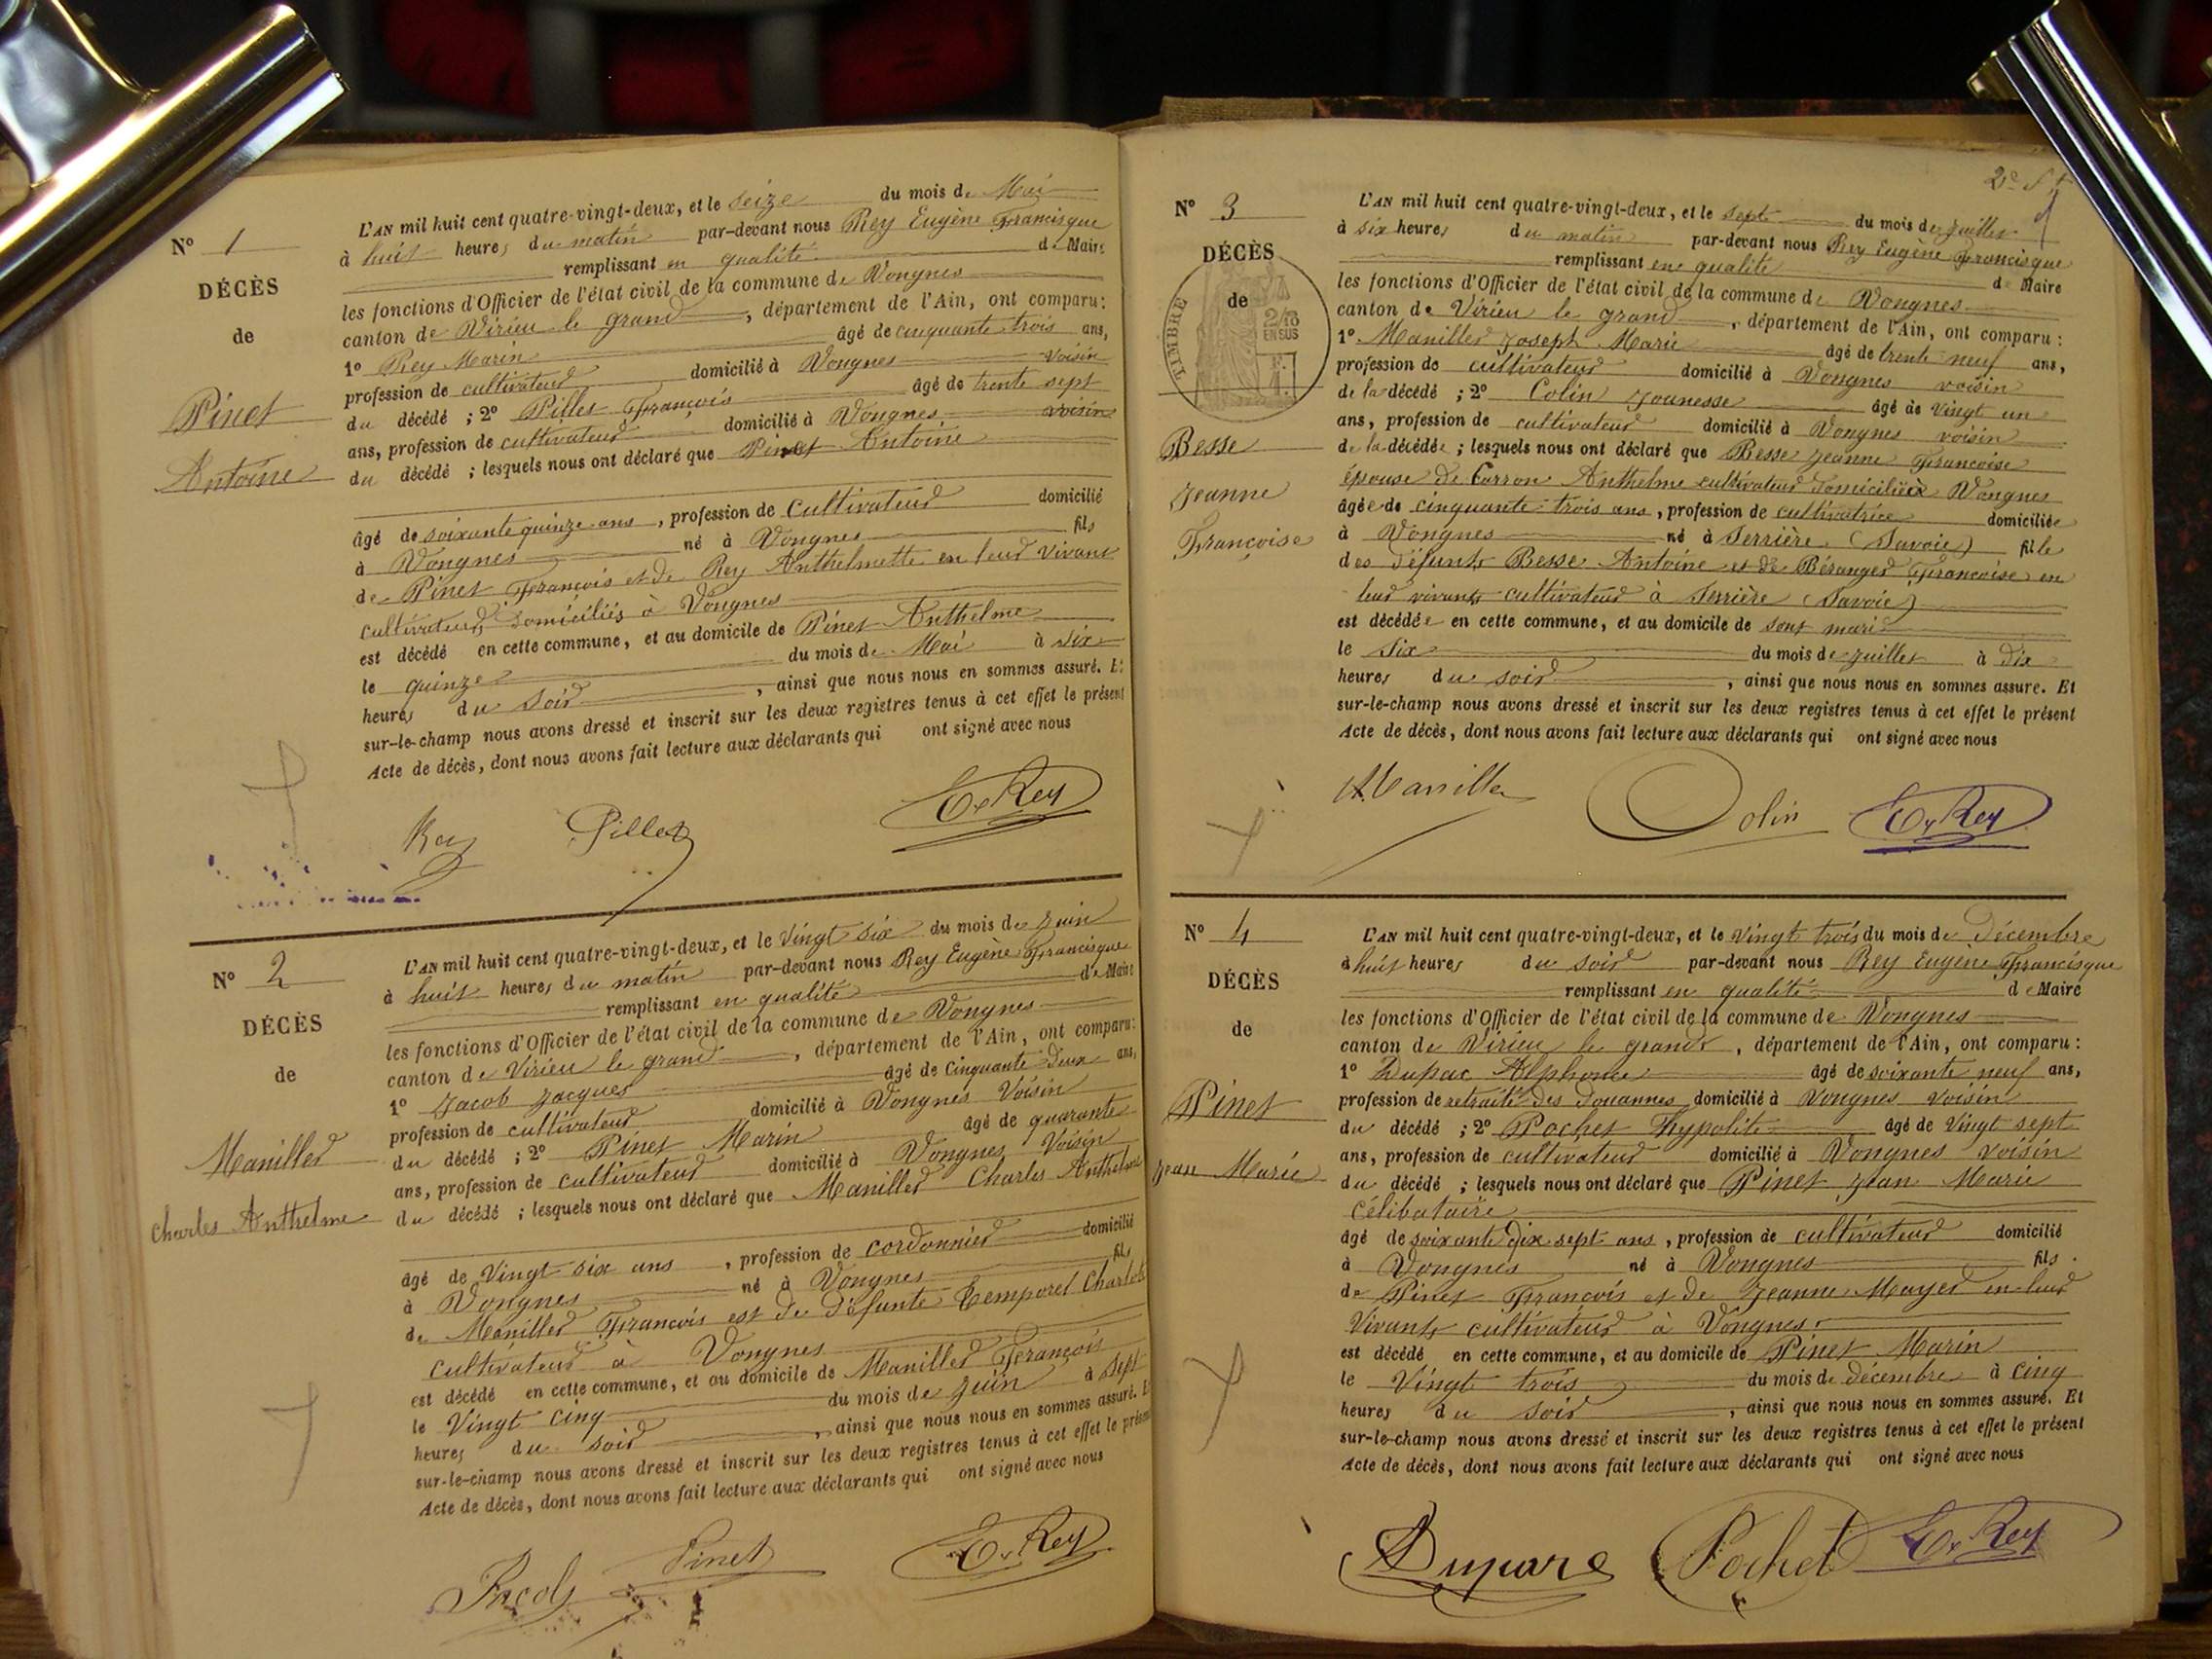 N° 1
DÉCÈS
de
Pinet
Antoine
L'AN mil huit cent quatre-vingt-deux, et le seize du mois de Mai
à huit heures du matin par-devant nous Rey Eugène Francisque
remplissant en qualité de Maire
les fonctions d'Officier de l'état civil de la commune de Vongnes
canton de Virieu le grand, département de l'Ain, ont comparu:
1° Rey Marin âgé de cinquante trois ans,
profession de cultivateur domicilié à Vongnes voisin
du décédé ; 2° Pillet François âgé de trente sept
ans, profession de cultivateur domicilié à Vongnes voisin
du décédé ; lesquels nous ont déclaré que Pinet Antoine
âgé de soixante quinze ans, profession de cultivateur domicilié
à Vongnes né à Vongnes fils
de Pinet François et de Rey Anthelmette en leur vivant
cultivateurs domiciliés à Vongnes
est décédé en cette commune, et au domicile de Pinet Anthelme
le quinze du mois de Mai à six
heures du soir, ainsi que nous nous en sommes assuré. Et
sur-le-champ nous avons dressé et inscrit sur les deux registres tenus à cet effet le présent
Acte de décès, dont nous avons fait lecture aux déclarants qui ont signé avec nous
Rey Pillet E. Rey
N° 2
DÉCÈS
de
Maniller
Charles Anthelme
L'AN mil huit cent quatre-vingt-deux, et le Vingt six du mois de Juin
à huit heures du matin par-devant nous Rey Eugène Francisque
remplissant en qualité de Maire
les fonctions d'Officier de l'état civil de la commune de Vongnes
canton de Virieu le grand, département de l'Ain, ont comparu:
1° Jacob Jacques âgé de cinquante deux ans,
profession de cultivateur domicilié à Vongnes Voisin
du décédé ; 2° Pinet Marin âgé de quarante
ans, profession de cultivateur domicilié à Vongnes Voisin
du décédé ; lesquels nous ont déclaré que Maniller Charles Anthelme
âgé de Vingt six ans, profession de cordonnier domicilié
à Vongnes né à Vongnes fils
de Maniller François est de défunte Temporel Charlotte
cultivateur à Vongnes
est décédé en cette commune, et au domicile de Maniller François
le Vingt cinq du mois de Juin à sept
heures du soir, ainsi que nous nous en sommes assuré. Et
sur-le-champ nous avons dressé et inscrit sur les deux registres tenus à cet effet le présent
Acte de décès, dont nous avons fait lecture aux déclarants qui ont signé avec nous
Jacob Pinet E. Rey
N° 3
DÉCÈS
de
TIMBRE
2/10
EN SUS
Besse
Jeanne
Françoise
L'AN mil huit cent quatre-vingt-deux, et le sept du mois de juillet
à six heures du matin par-devant nous Rey Eugène Francisque
remplissant en qualité de Maire
les fonctions d'Officier de l'état civil de la commune de Vongnes
canton de Virieu le grand, département de l'Ain, ont comparu :
1° Maniller Joseph Marie âgé de trente neuf ans,
profession de cultivateur domicilié à Vongnes voisin
de la décédé ; 2° Colin Jeunesse âgé de vingt un
ans, profession de cultivateur domicilié à Vongnes voisin
de la décédée ; lesquels nous ont déclaré que Besse Jeanne Françoise
épouse de Carron Anthelme cultivateur domiciliée à Vongnes
âgée de cinquante trois ans, profession de cultivatrice domiciliée
à Vongnes né à Serrière (Savoie) fille
des défunts Besse Antoine et de Béranger Françoise en
leur vivants cultivateur à Serrière (Savoie)
est décédée en cette commune, et au domicile de sont mari
le six du mois de juillet à dix
heures du soir, ainsi que nous nous en sommes assuré. Et
sur-le-champ nous avons dressé et inscrit sur les deux registres tenus à cet effet le présent
Acte de décès, dont nous avons fait lecture aux déclarants qui ont signé avec nous
Maniller Colin E. Rey
N° 4
DÉCÈS
de
Pinet
Jean Marie
L'AN mil huit cent quatre-vingt-deux, et le Vingt trois du mois de Décembre
à huit heures du soir par-devant nous Rey Eugène Francisque
remplissant en qualité de Maire
les fonctions d'Officier de l'état civil de la commune de Vongnes
canton de Virieu le grand, département de l'Ain, ont comparu :
1° Duparc Alphonse âgé de soixante neuf ans,
profession de retraité des Douannes domicilié à Vongnes voisin
du décédé ; 2° Pochet Hypolite âgé de Vingt sept
ans, profession de cultivateur domicilié à Vongnes voisin
du décédé ; lesquels nous ont déclaré que Pinet Jean Marie
célibataire
âgé de soixante dix sept ans, profession de cultivateur domicilié
à Vongnes né à Vongnes fils
de Pinet François et de Jeanne Mayer en leur
Vivants cultivateurs à Vongnes
est décédé en cette commune, et au domicile de Pinet Marin
le Vingt trois du mois de décembre à cinq
heures du soir, ainsi que nous nous en sommes assuré. Et
sur-le-champ nous avons dressé et inscrit sur les deux registres tenus à cet effet le présent
Acte de décès, dont nous avons fait lecture aux déclarants qui ont signé avec nous
Duparc Pochet E. Rey